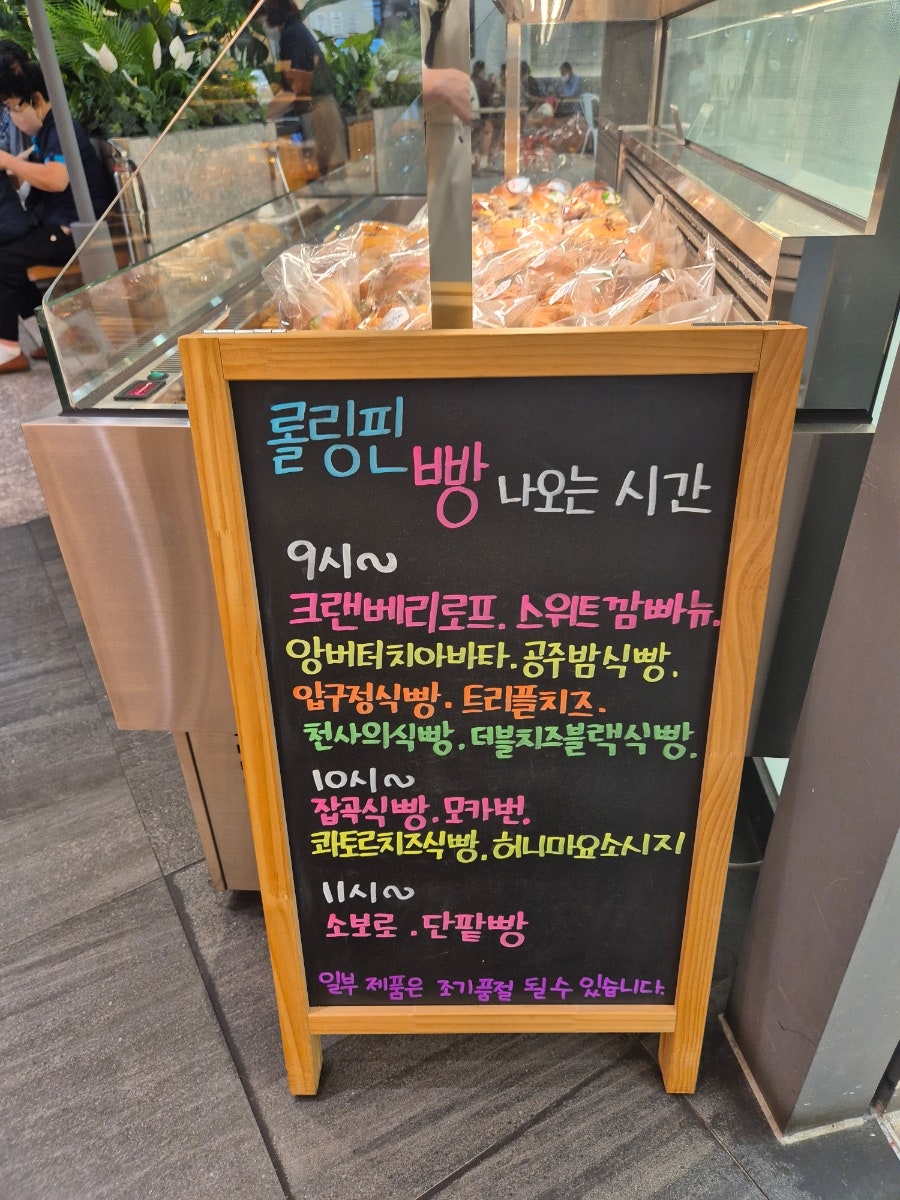 롤링핀
빵 나오는 시간
9시~
크랜베리로프. 스위트깜빠뉴.
앙버터치아바타. 공주밤식빵.
압구정식빵. 트리플치즈.
천사의식빵. 더블치즈블랙식빵.
10시~
잡곡식빵. 모카번.
콰토르치즈식빵. 허니마요소시지
11시~
소보로. 단팥빵
일부 제품은 조기품절 될 수 있습니다.